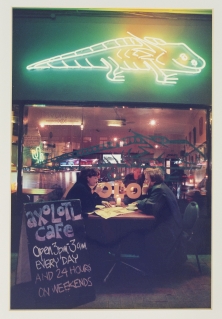 axolotl
cafe
Open 3pm-3am
EVERY DAY
AND 24 HOURS
ON WEEKENDS